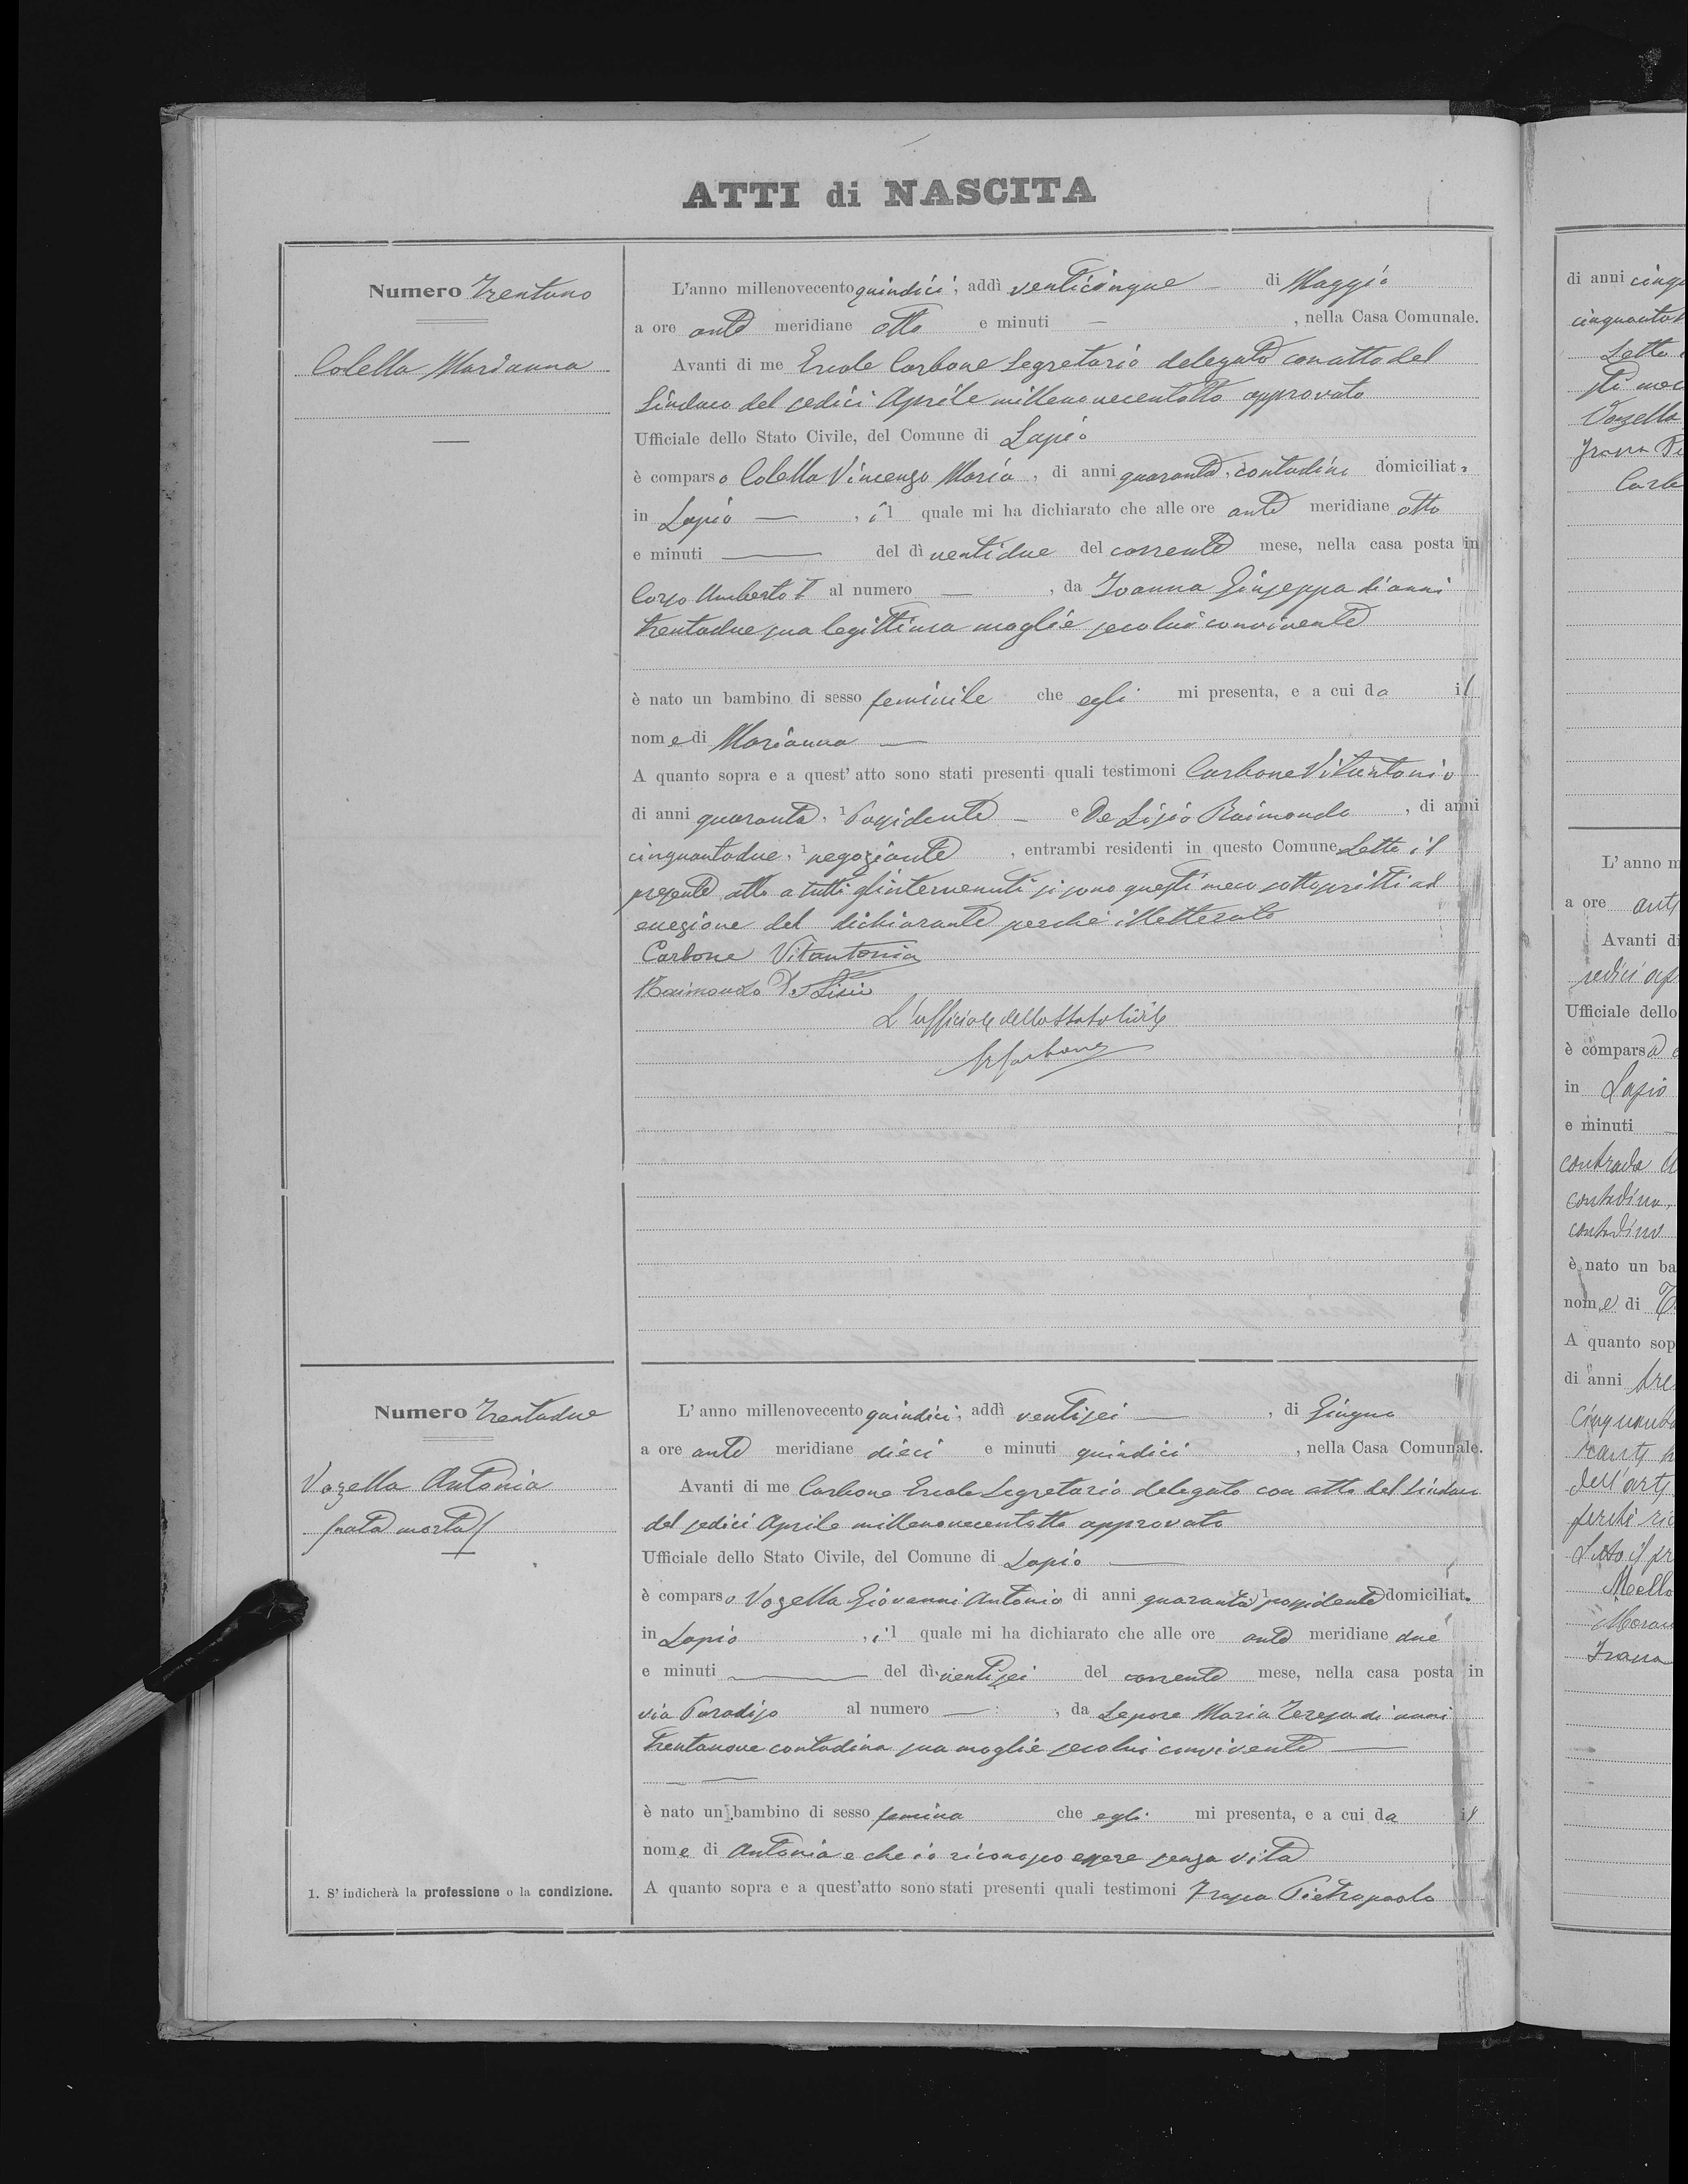 ATTI di NASCITA
Numero Trentuno
Colella Marianna
L'anno millenovecento quindici, addì venticinque di Maggio
a ore anti meridiane otto e minuti — , nella Casa Comunale.
Avanti di me Ercole Carbone Segretario delegato con atto del
Sindaco del sedici Aprile millenovecentotto approvato
Ufficiale dello Stato Civile, del Comune di Lapio
è comparso Colella Vincenzo Maria, di anni quaranta, contadino domiciliato
in Lapio — , il quale mi ha dichiarato che alle ore anti meridiane otto
e minuti — del dì ventidue del corrente mese, nella casa posta in
Corso Umberto I al numero — , da Ioanna Giuseppa di anni
trentadue sua legittima moglie seco lui convivente
è nato un bambino di sesso feminile che egli mi presenta, e a cui da il
nome di Marianna —
A quanto sopra e a quest' atto sono stati presenti quali testimoni Carbone Vitantonio
di anni quaranta, 1 Possidente — e De Lisio Raimondo , di anni
cinquantadue, 1 negoziante , entrambi residenti in questo Comune Letto il
presente atto a tutti gl'intervenuti si sono questi meco sottoscritti ad
eccezione del dichiarante perchè illetterato
Carbone Vitantonio
Raimondo De Lisio
L'ufficiale dello Stato Civile
Carbone
Numero Trentadue
Vozella Antonia
nata morta
L' anno millenovecento quindici, addì ventisei — , di Giugno
a ore anti meridiane dieci e minuti quindici , nella Casa Comunale.
Avanti di me Carbone Ercole Segretario delegato con atto del Sindaco
del sedici Aprile millenovecentotto approvato
Ufficiale dello Stato Civile, del Comune di Lapio —
è comparso Vozella Giovanni Antonio di anni quaranta 1 possidente domiciliato
in Lapio , il quale mi ha dichiarato che alle ore anti meridiane due
e minuti — del dì ventisei del corrente mese, nella casa posta in
via Paradiso al numero — , da Lepore Maria Teresa di anni
trentanove contadina sua moglie seco lui convivente —
è nato un bambino di sesso femina che egli mi presenta, e a cui da il
nome di Antonia e che io riconosco essere senza vita
A quanto sopra e a quest'atto sono stati presenti quali testimoni Pietropaolo
1. S' indicherà la professione o la condizione.
di anni
cinquanta
Letto
Vozella
L' anno
a ore
Avanti di
sedici
Ufficiale dello
è compars
in Lapio
e minuti
contrada
contadina,
contadino
è nato un ba
nome di
A quanto sop
di anni tre
cinquanta
dell'art
perchè